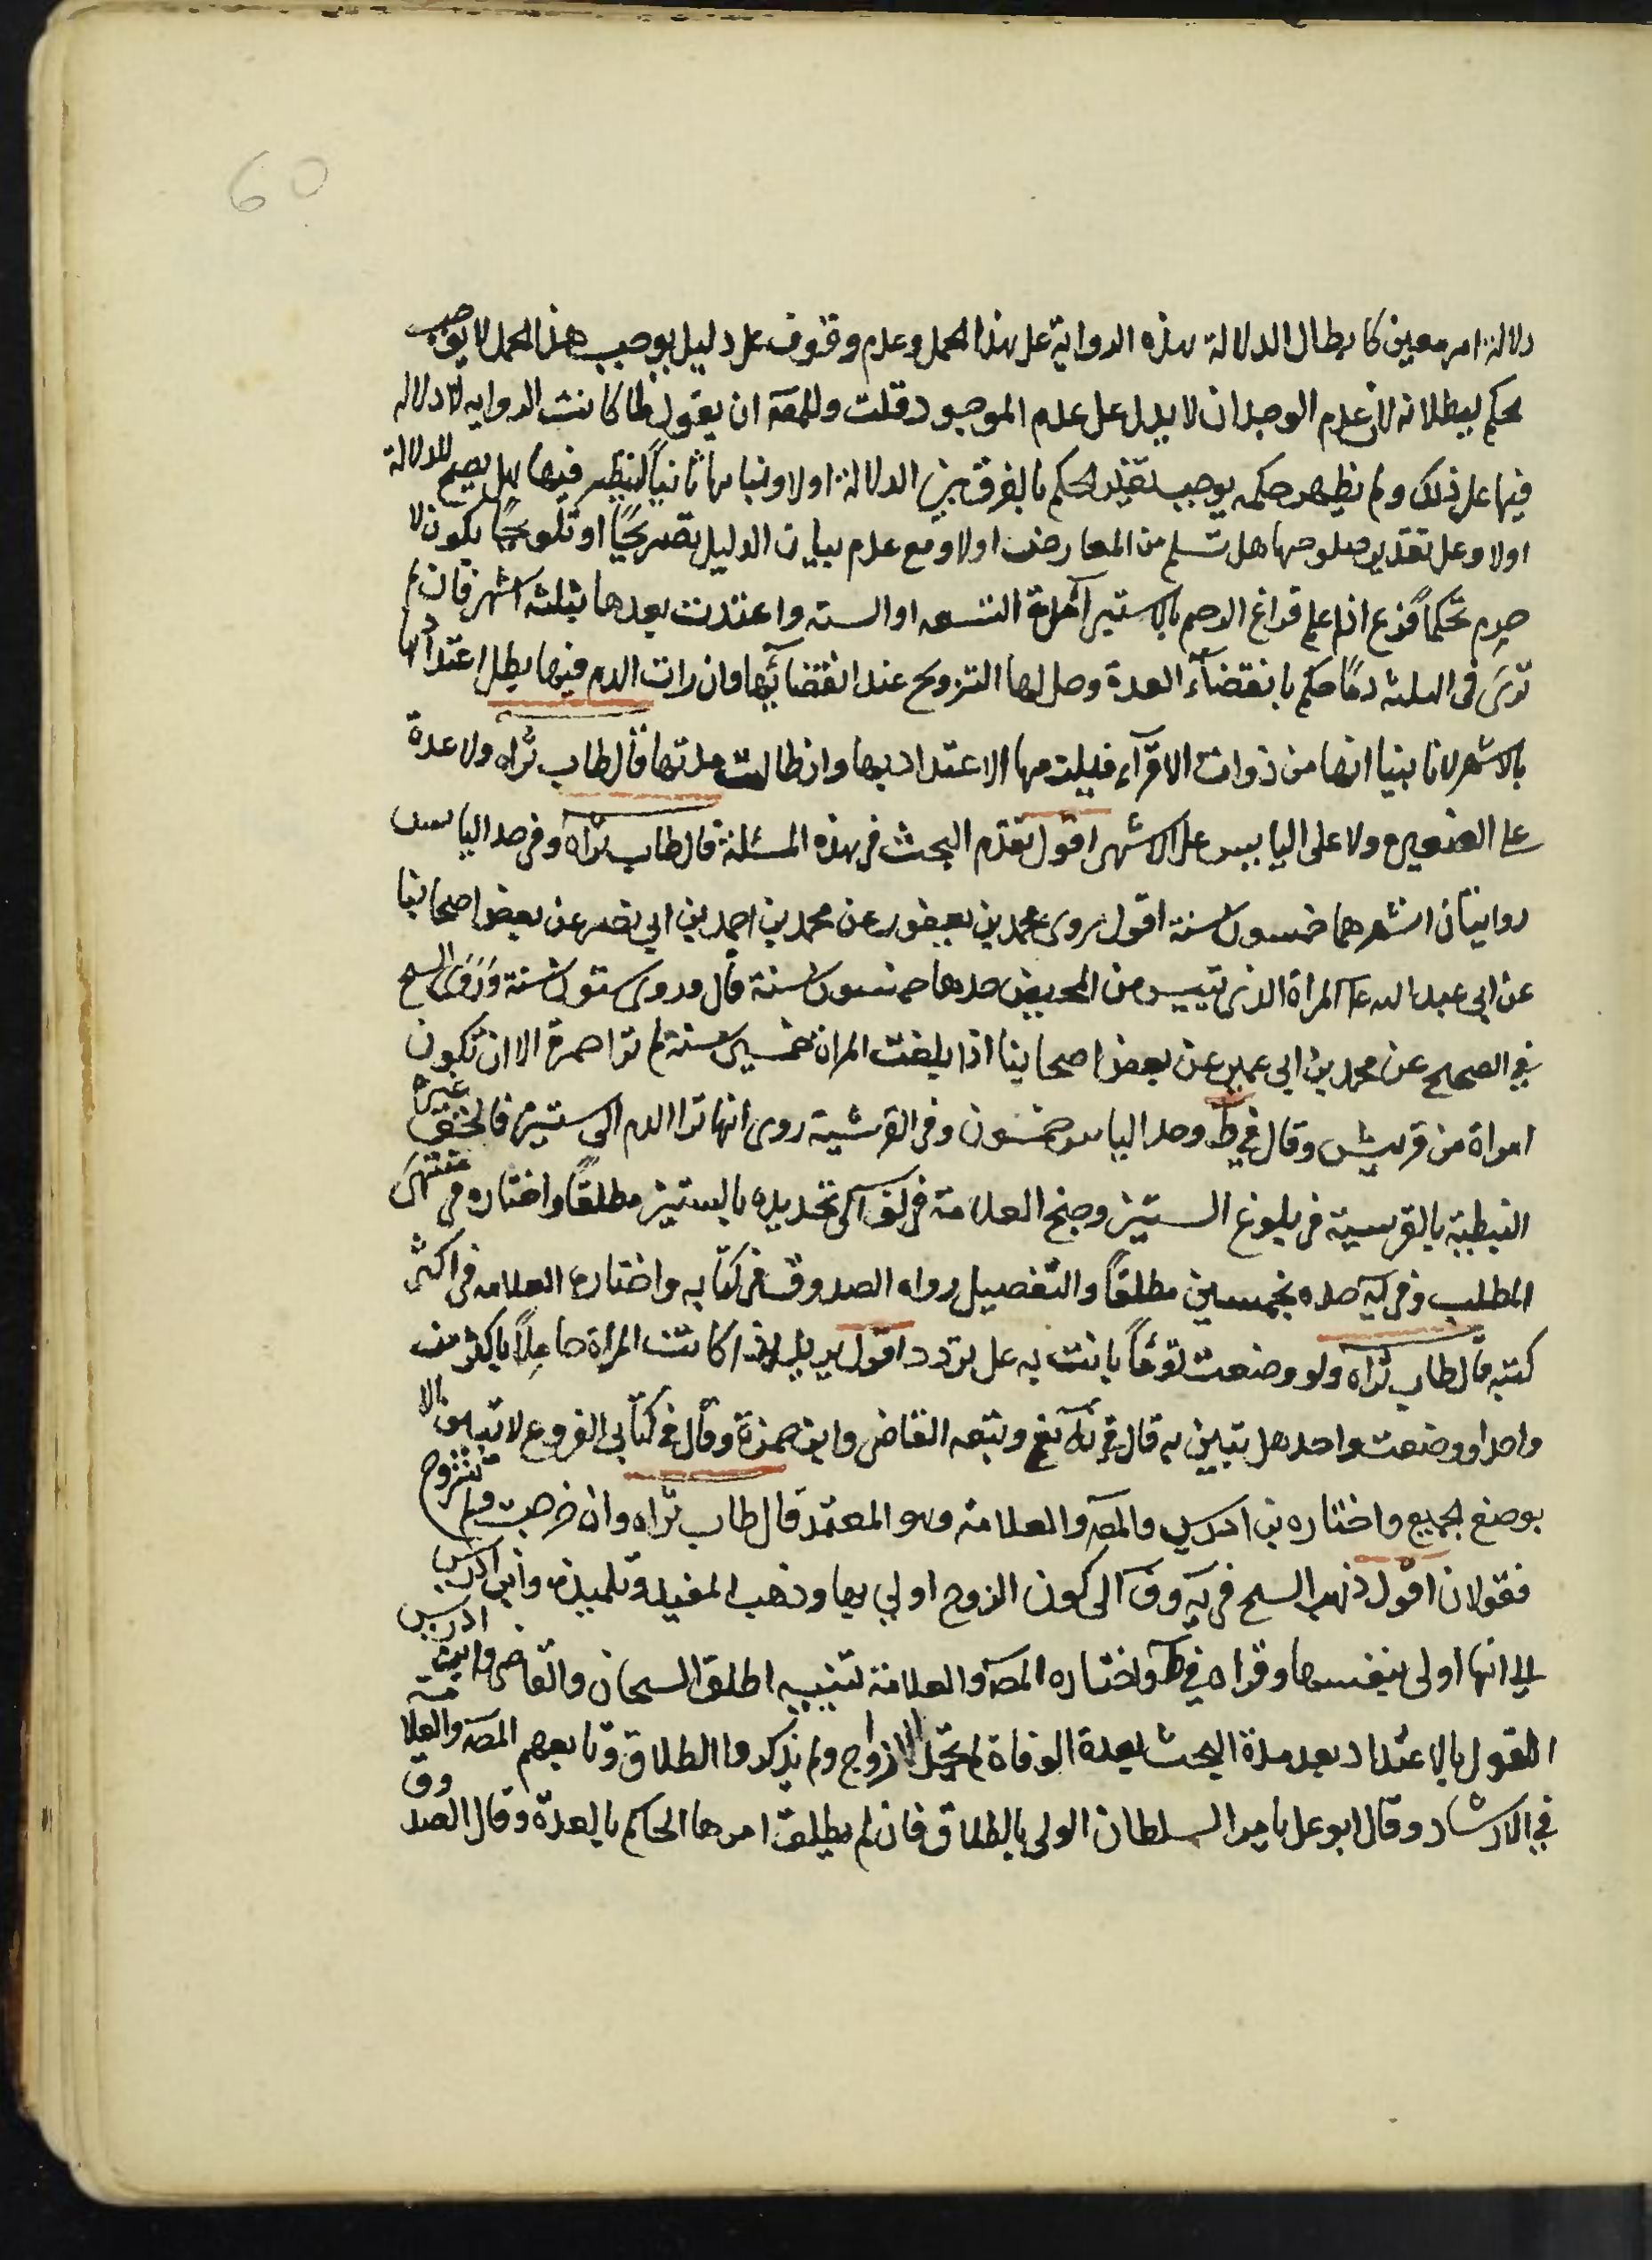 60
دلالة امر معين كابطال الدلالة هذه الرواية على هذا الحمل وعدم وقوف على دليل يوجب هذا الحمل لا يوجب
حكم ببطلانه لان عدم الوجدان لا يدل على عدم الموجود قلت وللمصّ ان يقول لما كانت الروايه لا دلاله
فيها على ذلك ولم يظهر حكمه يوجب الحكم بالفرق بين الدلالة اولا وثباتها ثانياً لينظر فيها هل يصح للدلالة
اولا وعلى تقدير صلوحها هل تسلم من المعارض اولا ومع عدم بيان الدليل تصريحًا او تلويحًا يكون لا
جرم تحكماً فرع اذا علم فراغ الرحم بالاستبرآء لمدة التسعه او السته واعتدت بعدها بثلثه اشهر فان لم
ترى فى الثلثه دمًا حكم بانقضآء العدة وحل لها التزويج عند انقضائها وان رات الدم فيها بطل اعتدادها
بالاشهر لانا بينا انها من ذوات الاقرآء فيلزمها الاعتداد بها وان طالت مدتها قال طاب ثراه ولا عدة
على الصغيره ولا على اليايسه على الاشهر اقول تقدم البحث فى هذه المسئلة قال طاب ثراه وفى حد الياس
روايتان اشهرهما خمسون سنة اقول روى محمد بن يعقوب عن محمد بن احمد بن ابي نصر عن بعض اصحابنا
عن ابي عبد الله عا المراة الذى تيئس من المحيض حدها خمسون سنة قال وروى ستون سنة وَرَوَى الشيخ
في الصحيح عن محمد بن ابي عمير عن بعض اصحابنا اذا بلغت المراة خمسين سنة لم ترا حمرة الا ان تكون
امراة من قريش وقال في ط وحد الياس خمسون وفى القرشية روى انها ترا الدم الى ستين فالحق غيره
النبطية بالقرشية فى بلوغ الستين وجنح العلامة فى لف الى تحديده بالستين مطلقاً واختاره فى منتهى
المطلب وفى يه حده بخمسين مطلقاً والتفصيل رواه الصدوق فى كتابه واختاره العلامه فى اكثر
كتبه قال طاب ثراه ولو وضعت توءماً بانت به على تردد اقول يريد اذا كانت المراة حاملاً باكثر من
واحد ووضعت واحد هل تبين به قال فى يه نعم وتبعه القاضى وابن حمزة وقال في كتابي الفروع لا تبين الا
بوضع لجميع واختاره بن ادريس والمصّ والعلامة وهو المعتمد قال طاب ثراه وان خرجت ولم تتزوج
فقولان اقول ذهب الشيخ فى يه وف الى كون الزوج اولي بها وذهب المفيد وتلميذه وابن ادريس
الي انها اولى بنفسها وقراه في ط واختاره المصّ والعلامة تنبيه اطلق الشيخان والقاضى وابن ادريس
القول بالاعتداد بعد مدة البحث بعدة الوفاة لم تحل الازواج ولم يذكروا الطلاق وتابعهم المصّ والعلامة
في الارشاد وقال ابو على يامر السلطان الولى بالطلاق فان لم يطلق امرها الحاكم بالعدة وقال الصدوق